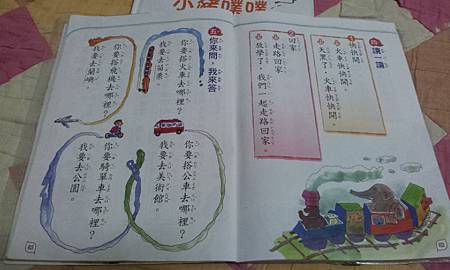 小豬噗噗
四 讀一讀
1 快快開
火車快快開。
天黑了，火車快快開。
2 回家
走路回家
放學了，我們一起走路回家。
五 你來問，我來答
你要搭火車去哪裡？
我要去苗栗。
你要搭飛機去哪裡？
我要去蘭嶼。
你要搭公車去哪裡？
我要去美術館。
你要騎單車去哪裡？
我要去公園。